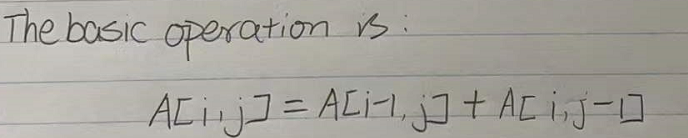 The basic operation is:
A[i,j] = A[i-1,j] + A[i,j-1]